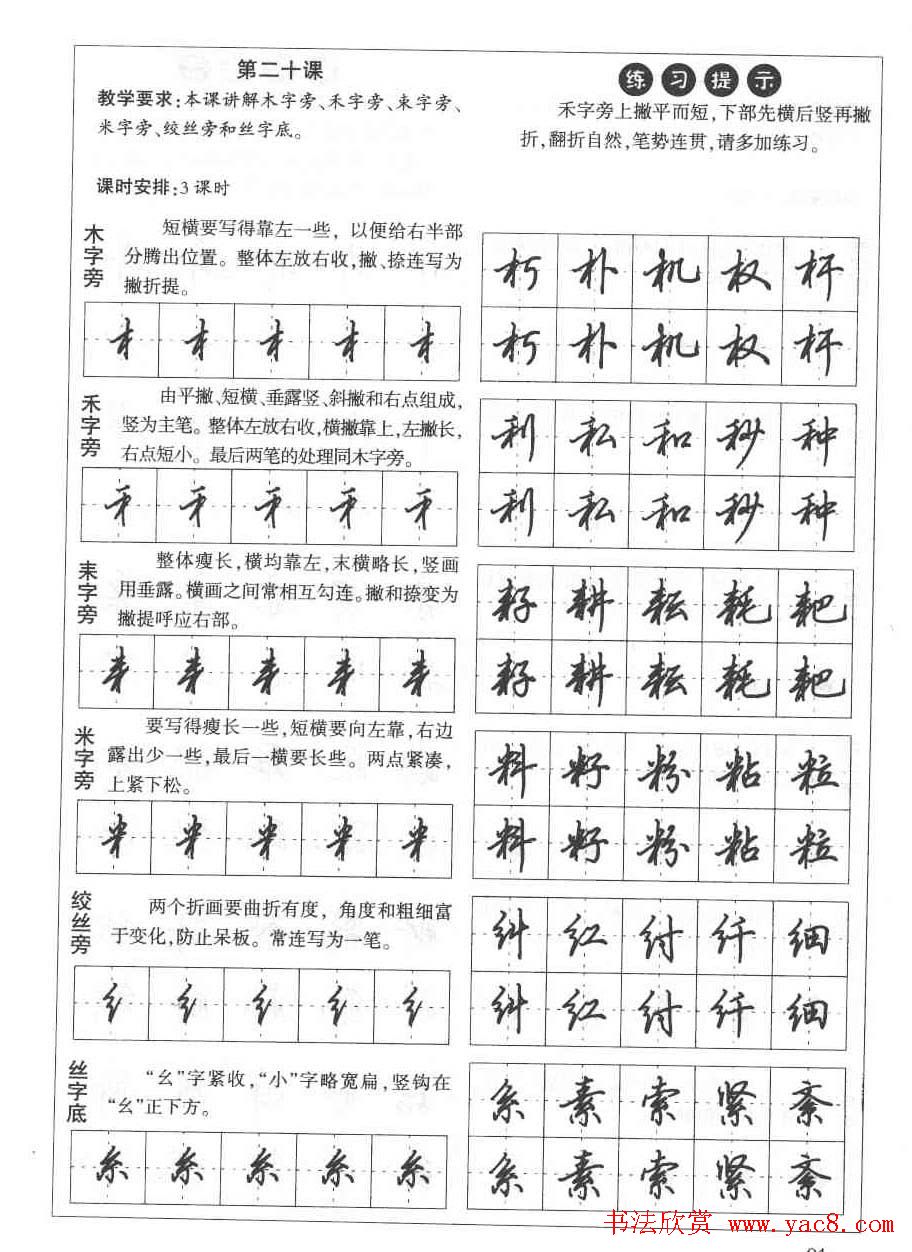 第二十课
教学要求:本课讲解木字旁、禾字旁、耒字旁、
米字旁、绞丝旁和丝字底。
课时安排:3课时
练习提示
禾字旁上撇平而短,下部先横后竖再撇
折,翻折自然,笔势连贯,请多加练习。
木字旁
短横要写得靠左一些，以便给右半部
分腾出位置。整体左放右收,撇、捺连写为
撇折提。
朽 朴 机 权 杆
朽 朴 机 权 杆
禾字旁
由平撇、短横、垂露竖、斜撇和右点组成,
竖为主笔。整体左放右收,横撇靠上,左撇长,
右点短小。最后两笔的处理同木字旁。
利 私 和 秒 种
利 私 和 秒 种
耒字旁
整体瘦长,横均靠左,末横略长,竖画
用垂露。横画之间常相互勾连。撇和捺变为
撇提呼应右部。
耔 耕 耘 耗 耙
耔 耕 耘 耗 耙
米字旁
要写得瘦长一些,短横要向左靠,右边
露出少一些,最后一横要长些。两点紧凑,
上紧下松。
料 籽 粉 粘 粒
料 籽 粉 粘 粒
绞丝旁
两个折画要曲折有度，角度和粗细富
于变化,防止呆板。常连写为一笔。
纠 红 付 纤 细
纠 红 付 纤 细
丝字底
“幺”字紧收,“小”字略宽扁,竖钩在
“幺”正下方。
糸 糸 糸 糸 糸
系 素 索 紧 紊
系 素 索 紧 紊
书法欣赏 www.yac8.com